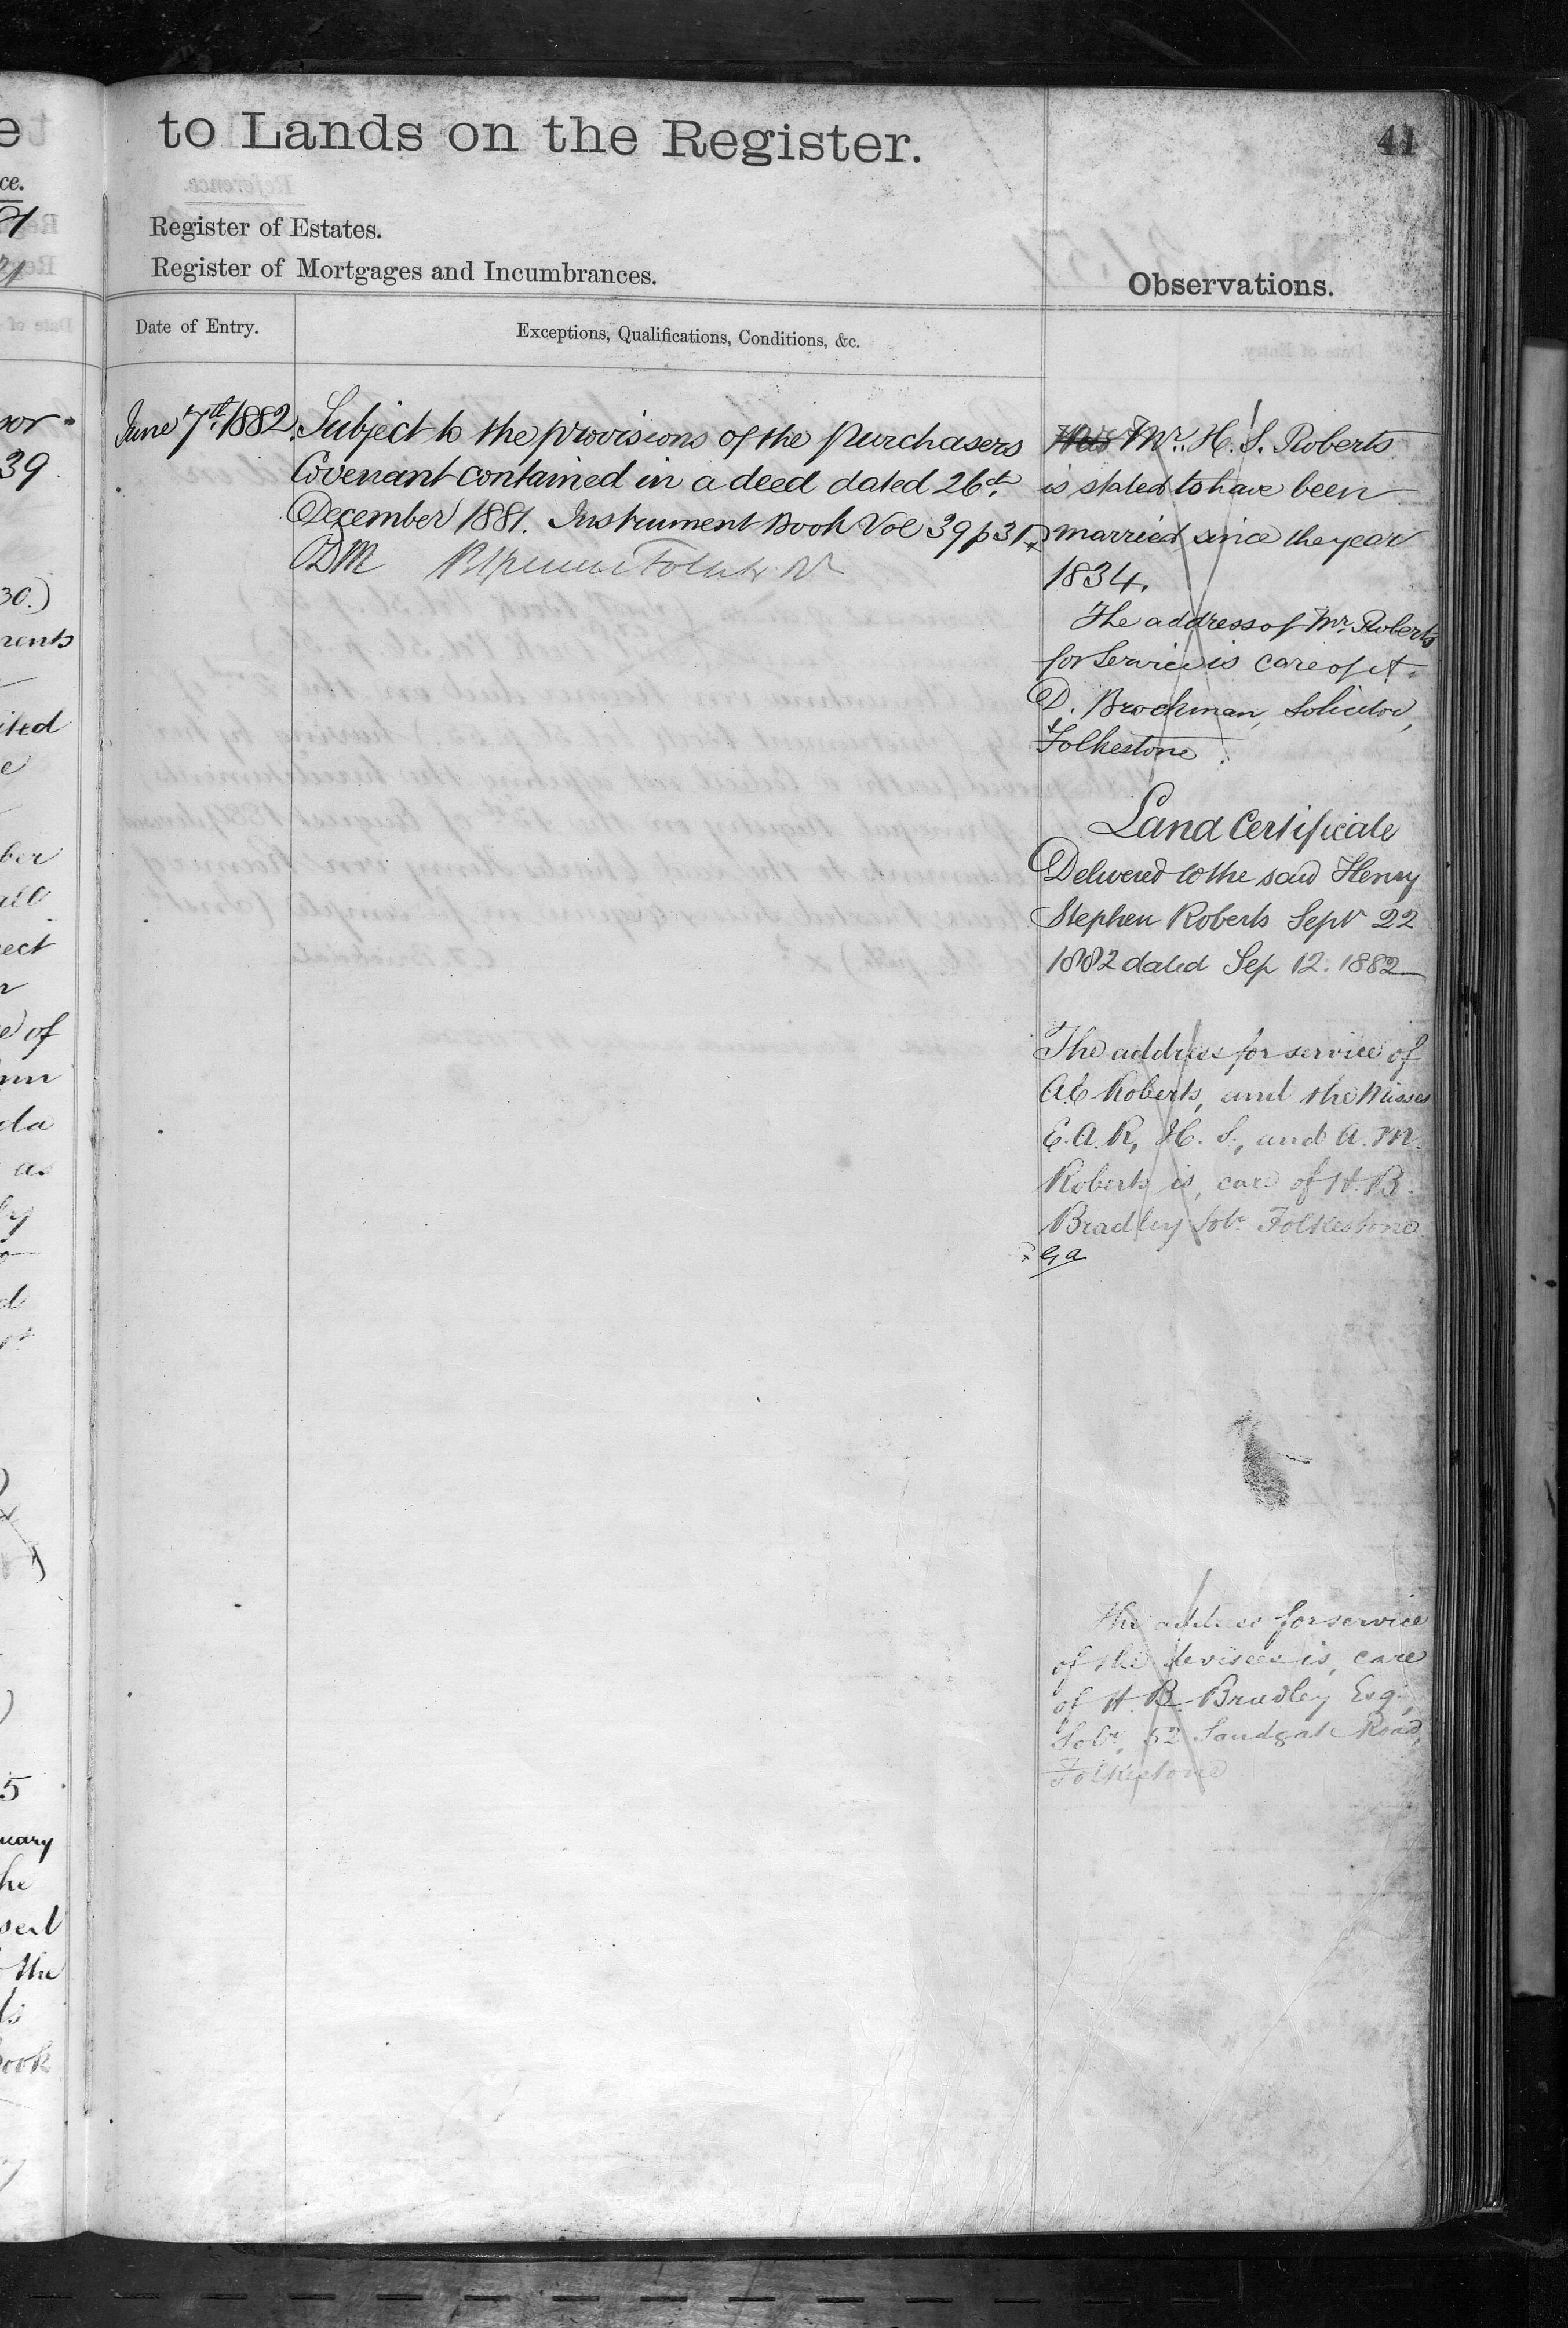 to Lands on the Register.
41
Register of Estates.
Register of Mortgages and Incumbrances.
Observations.
Date of Entry.
Exceptions, Qualifications, Conditions, &c.
June 7th 1882.
Subject to the provisions of the purchasers
Covenant contained in a deed dated 26th
December 1881. Instrument Book Vol 39 p 31
DM
Mr. H. S. Roberts
is stated to have been
married since the year
1834.
The address of Mr. Roberts
for Service is care of A.
D. Brockman, Solicitor,
Folkestone.
Land Certificate
Delivered to the said Henry
Stephen Roberts Sept 22
1882 dated Sep 12. 1882
The address for service of
A.E. Roberts, and the Misses
E. A. R, H. S., and A. M.
Roberts is, care of H. B.
Bradley Solr. Folkestone
The address for service
of the devisees is, care
of H. B. Bradley Esq.,
Solr., 52 Sandgate Road,
Folkestone
ce.
39.
30.)
ments
ited
e
ber
all
ect
of
as
5
uary
he
the
ook